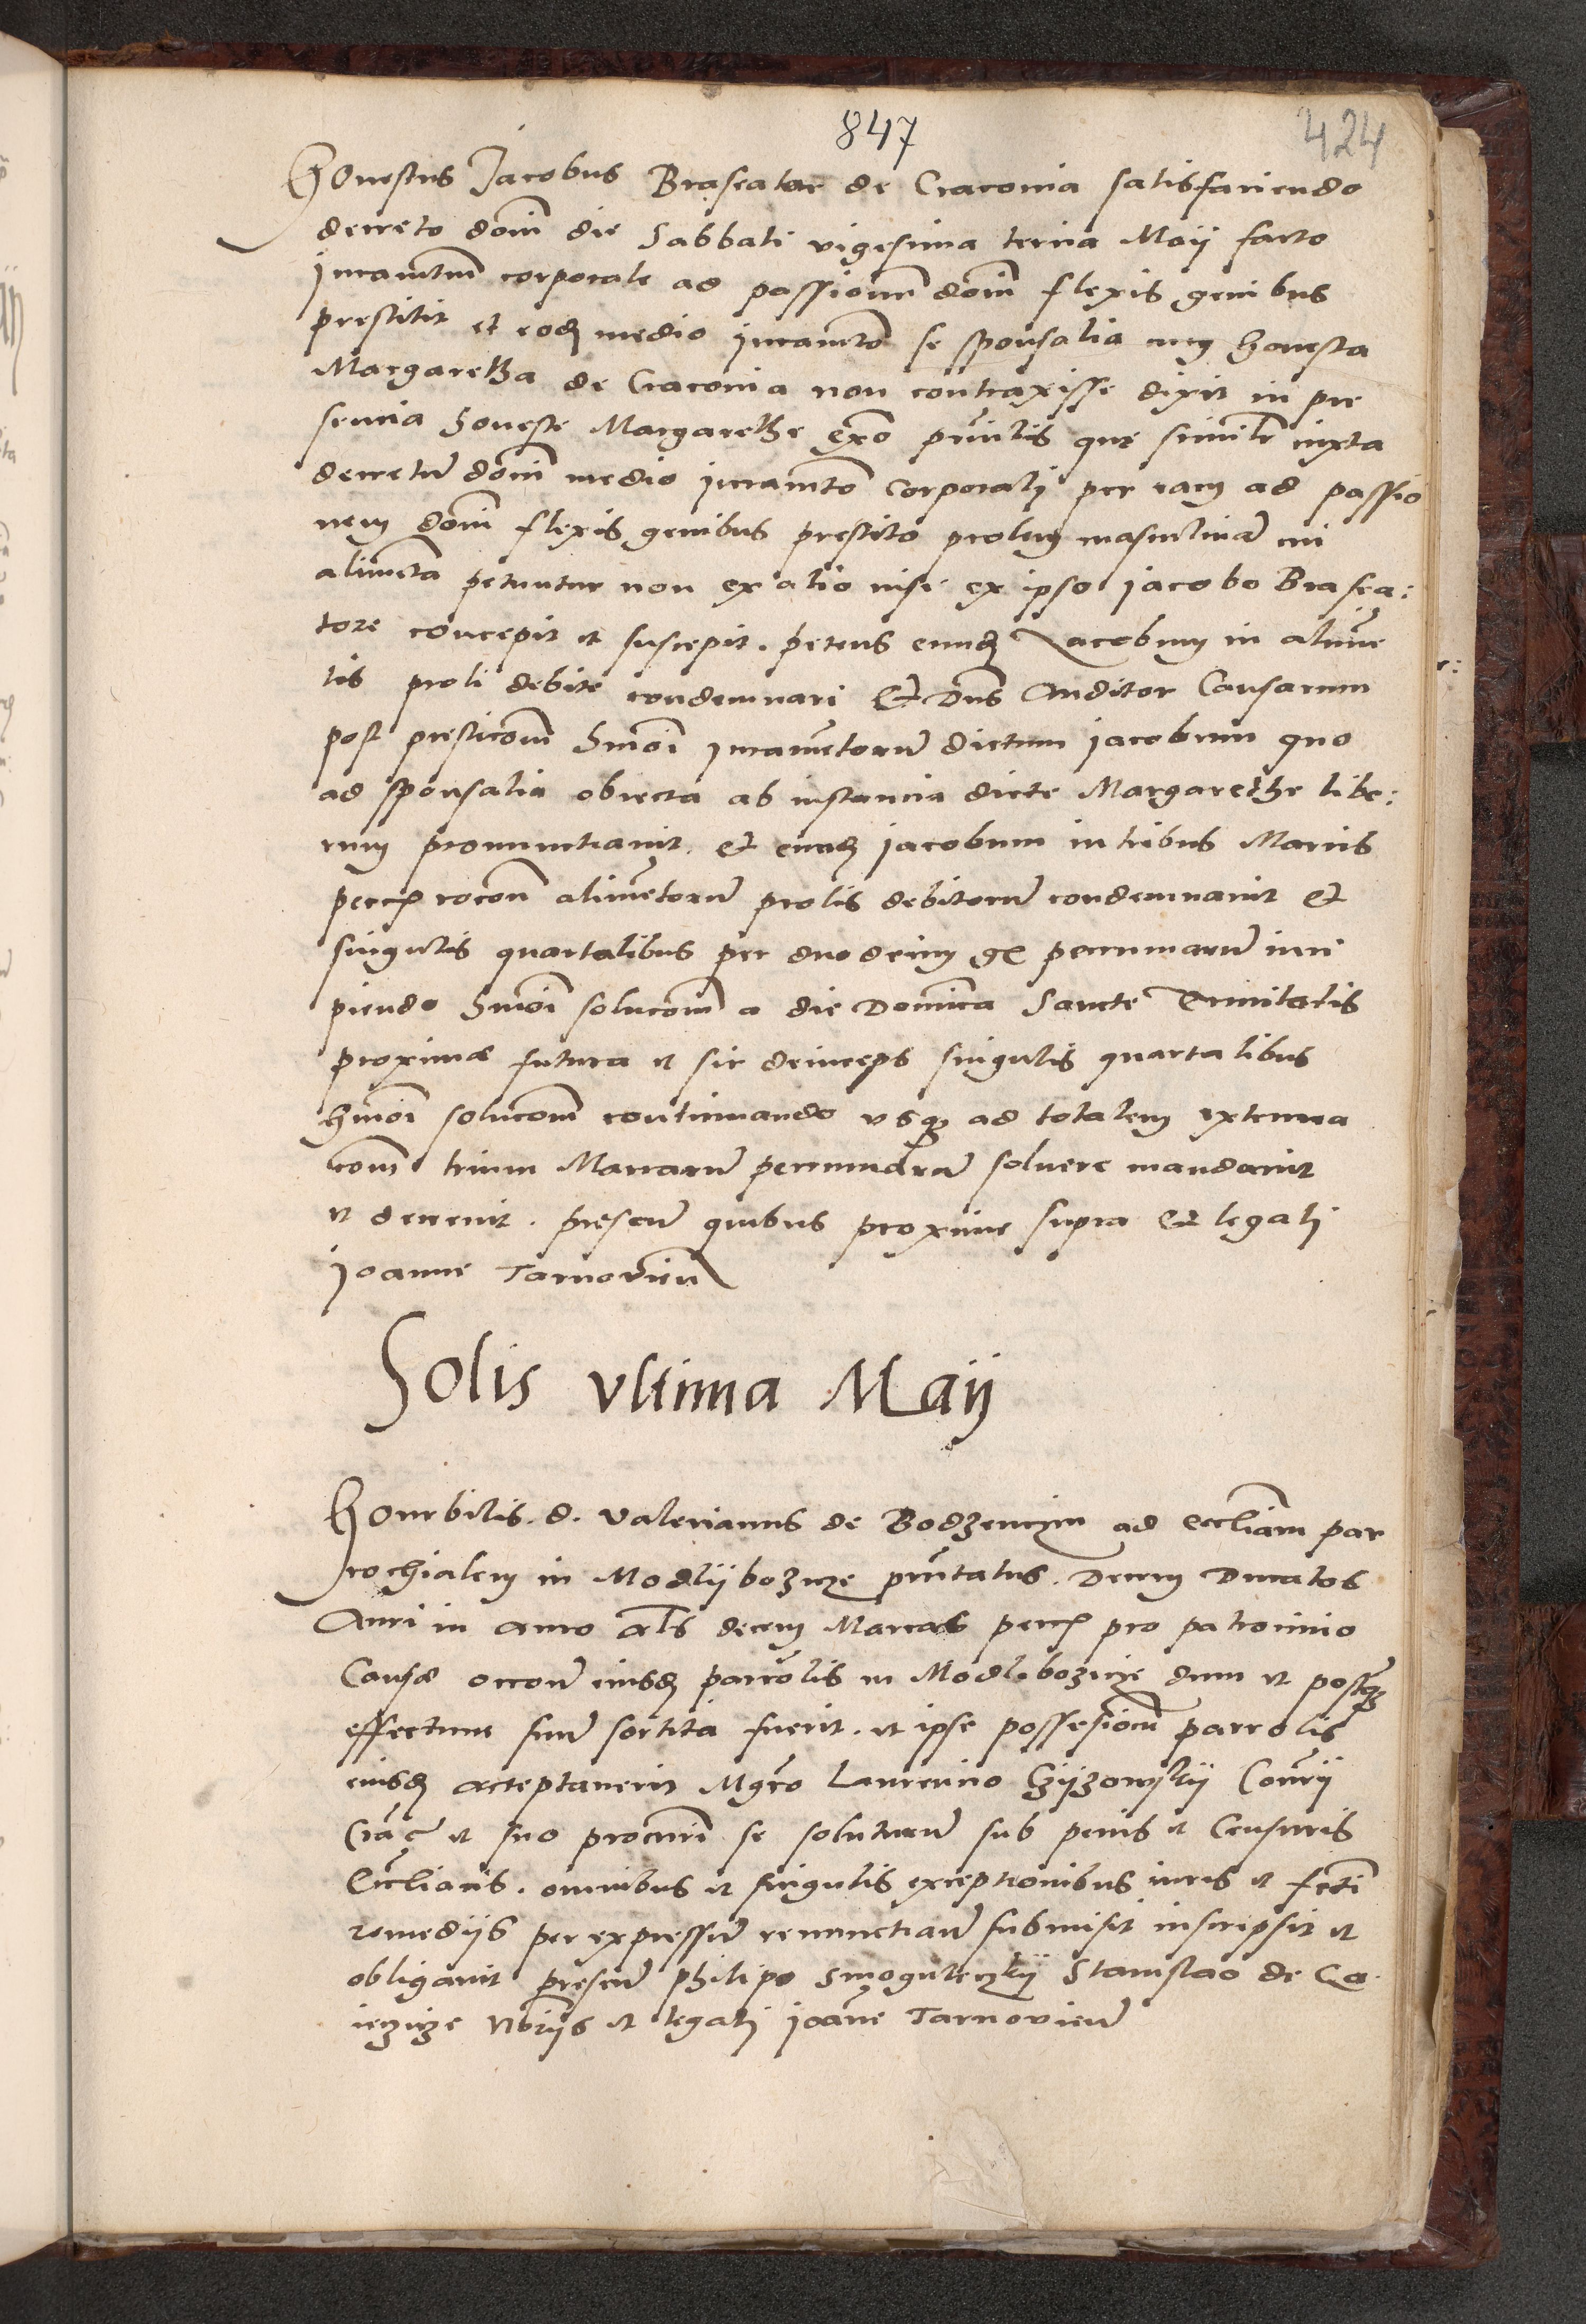 847
424
HOnestus Jacobus Braseator de Cracovia satisfaciendo
decreto domi die Sabbati vigesima tercia Maij facto
juramtum corporale ad passionem domi flexis genibus
prestitit et eodem medio juramto se sponsalia cum honesta
Margaretha de Cracovia non contraxisse dixit in pre
sencia honeste Margarethe que similr iuxta
decretu domi medio juramto corporali per eam ad passio
nem domi flexis genibus prestito prolem masculinam cui
alimeta petuntur non ex alio nisi ex ipso jacobo Brasea:
tore concepit et suscepit. petens eundem Jacobum in alime
tis proli debite condemnari Et Dns Auditor Causarum
post presticom hmoi juramtoru dictum jacobum quo
ad sponsalia obiecta ab instancia dicte Margarethe libe:
rum pronunctiavit. et eundem jacobum in tribus Marcis
alimetoru prolis debitoru condemnavit et
singulis quartalibus per duodecim gr pecuniaru inci
piendo hmoi solucom a die Domica Sancte Trinitatis
proxima futura et sic deinceps singulis quartalibus
hmoi solucom continuando usque ad totalem extenua
com trium Marcaru pecuniaru solvere mandavit
et decrevit. presen quibus proxime supra et legali
joanne Tarnovien
Solis ultima Maij
HOnorbilis. d. Valerianus de Bodzenczin ad eccliam par
rochialem in Modlijbozicze pntatus. Decem Ducatos
Auri in auro als decem Marcas pro patrocinio
Causae eiusdem parrolis in Modlibozicze dum et postquam
effectum suu sortita fuerit. et ipse possesionem parrolis
eiusdem acceptaverit Mgro Laurencio Czijzowskij
Crac et suo procuri se soluturu sub penis et Censuris
Ecclicis. omnibus et singulis exceptionibus iuris et fcti
remedijs per expressu renunctiau submisit inscripsit et
obligavit presen philipo Smoguleczkij Stanislao de
Notrijs et legali joane Tarnovien